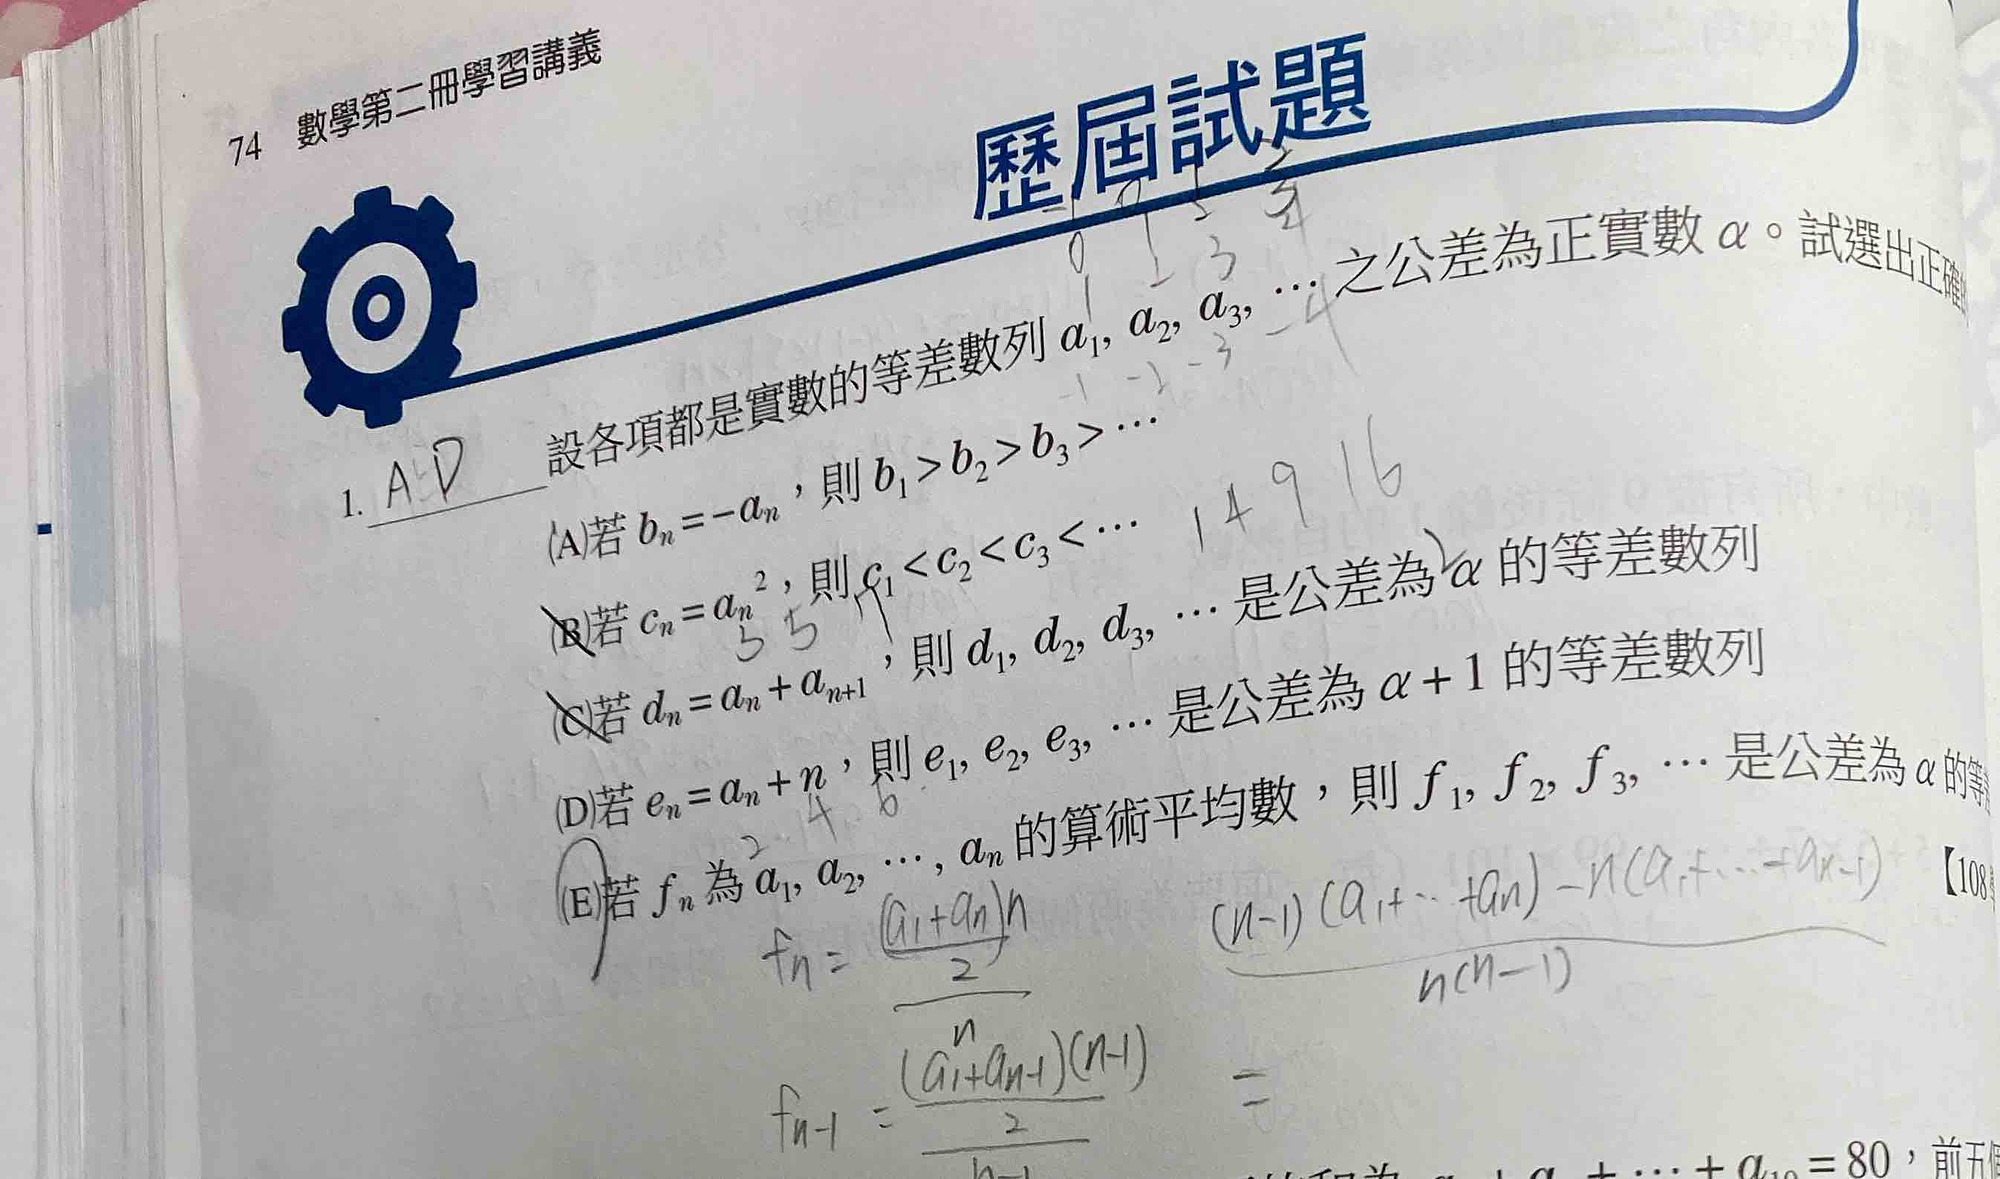 74 數學第二冊學習講義
歷屆試題
0 1 2 3
1 2 3 4
1. AD 設各項都是實數的等差數列 a₁, a₂, a₃, … 之公差為正實數 α。試選出正確
-1 -2 -3 -4
(A)若 bₙ = −aₙ,則 b₁ > b₂ > b₃ > …
(B)若 cₙ = aₙ²,則 c₁ < c₂ < c₃ < … 1 4 9 16
(C)若 dₙ = aₙ + aₙ₊₁,則 d₁, d₂, d₃, … 是公差為 α 的等差數列
(D)若 eₙ = aₙ + n,則 e₁, e₂, e₃, … 是公差為 α + 1 的等差數列
2 4 6
(E)若 fₙ 為 a₁, a₂, …, aₙ 的算術平均數,則 f₁, f₂, f₃, … 是公差為 α 的等
【108
fₙ = (a₁+aₙ)n / 2 / n
(n-1)(a₁+…+aₙ) - n(a₁+…+aₙ₋₁) / n(n-1)
fₙ₋₁ = (a₁+aₙ₋₁)(n-1) / 2 / n-1 =
+ … + a₁₀ = 80,前五